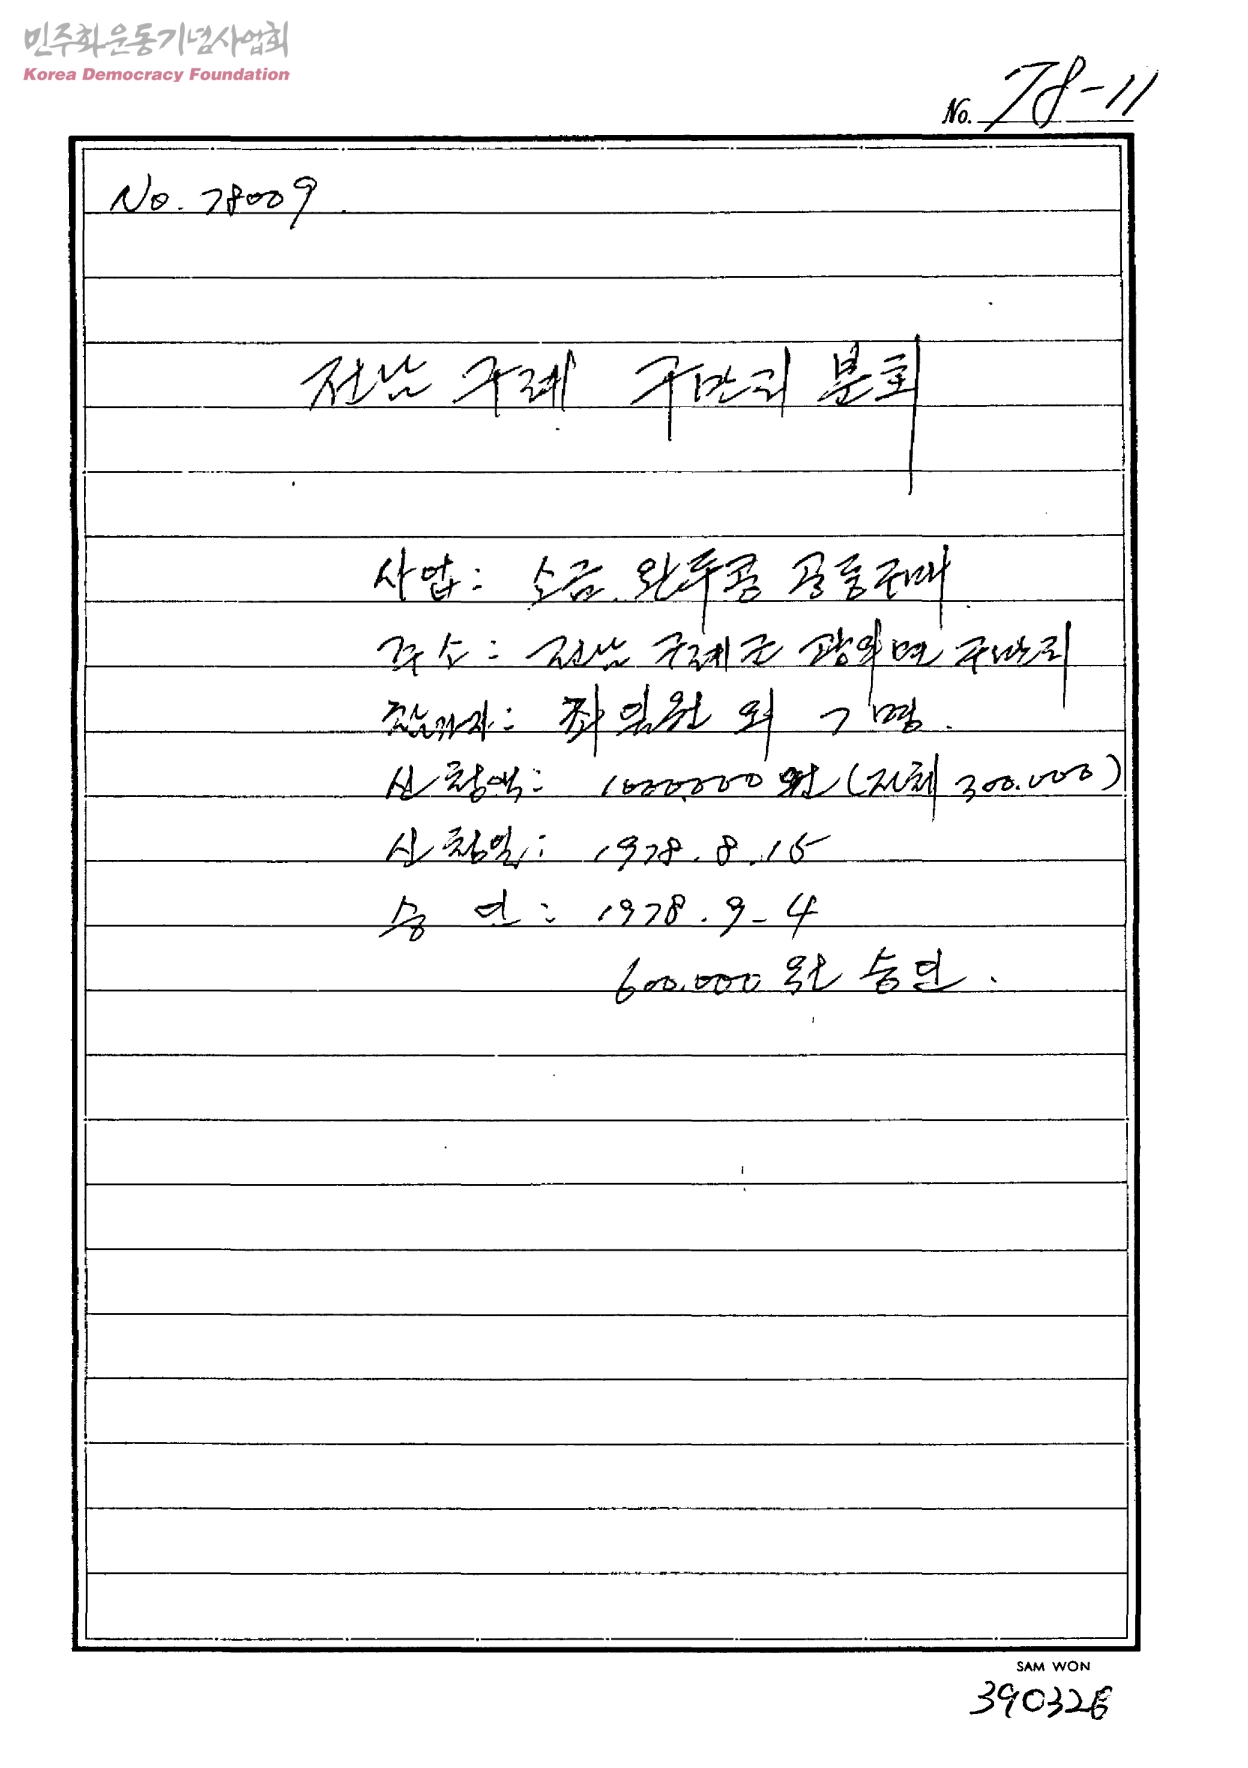 민주화운동기념사업회
Korea Democracy Foundation
No. 78-11
No. 78009
전남 구례 구만리 분회
사업: 소금. 완두콩 공동구매
주소: 전남 구례군 광의면 구만리
참가자: 최임원 외 7명.
신청액: 1000.000 원 (자체 300.000)
신청일: 1978. 8. 15
승인: 1978. 9-4
600.000 원 승인.
SAM WON
390326